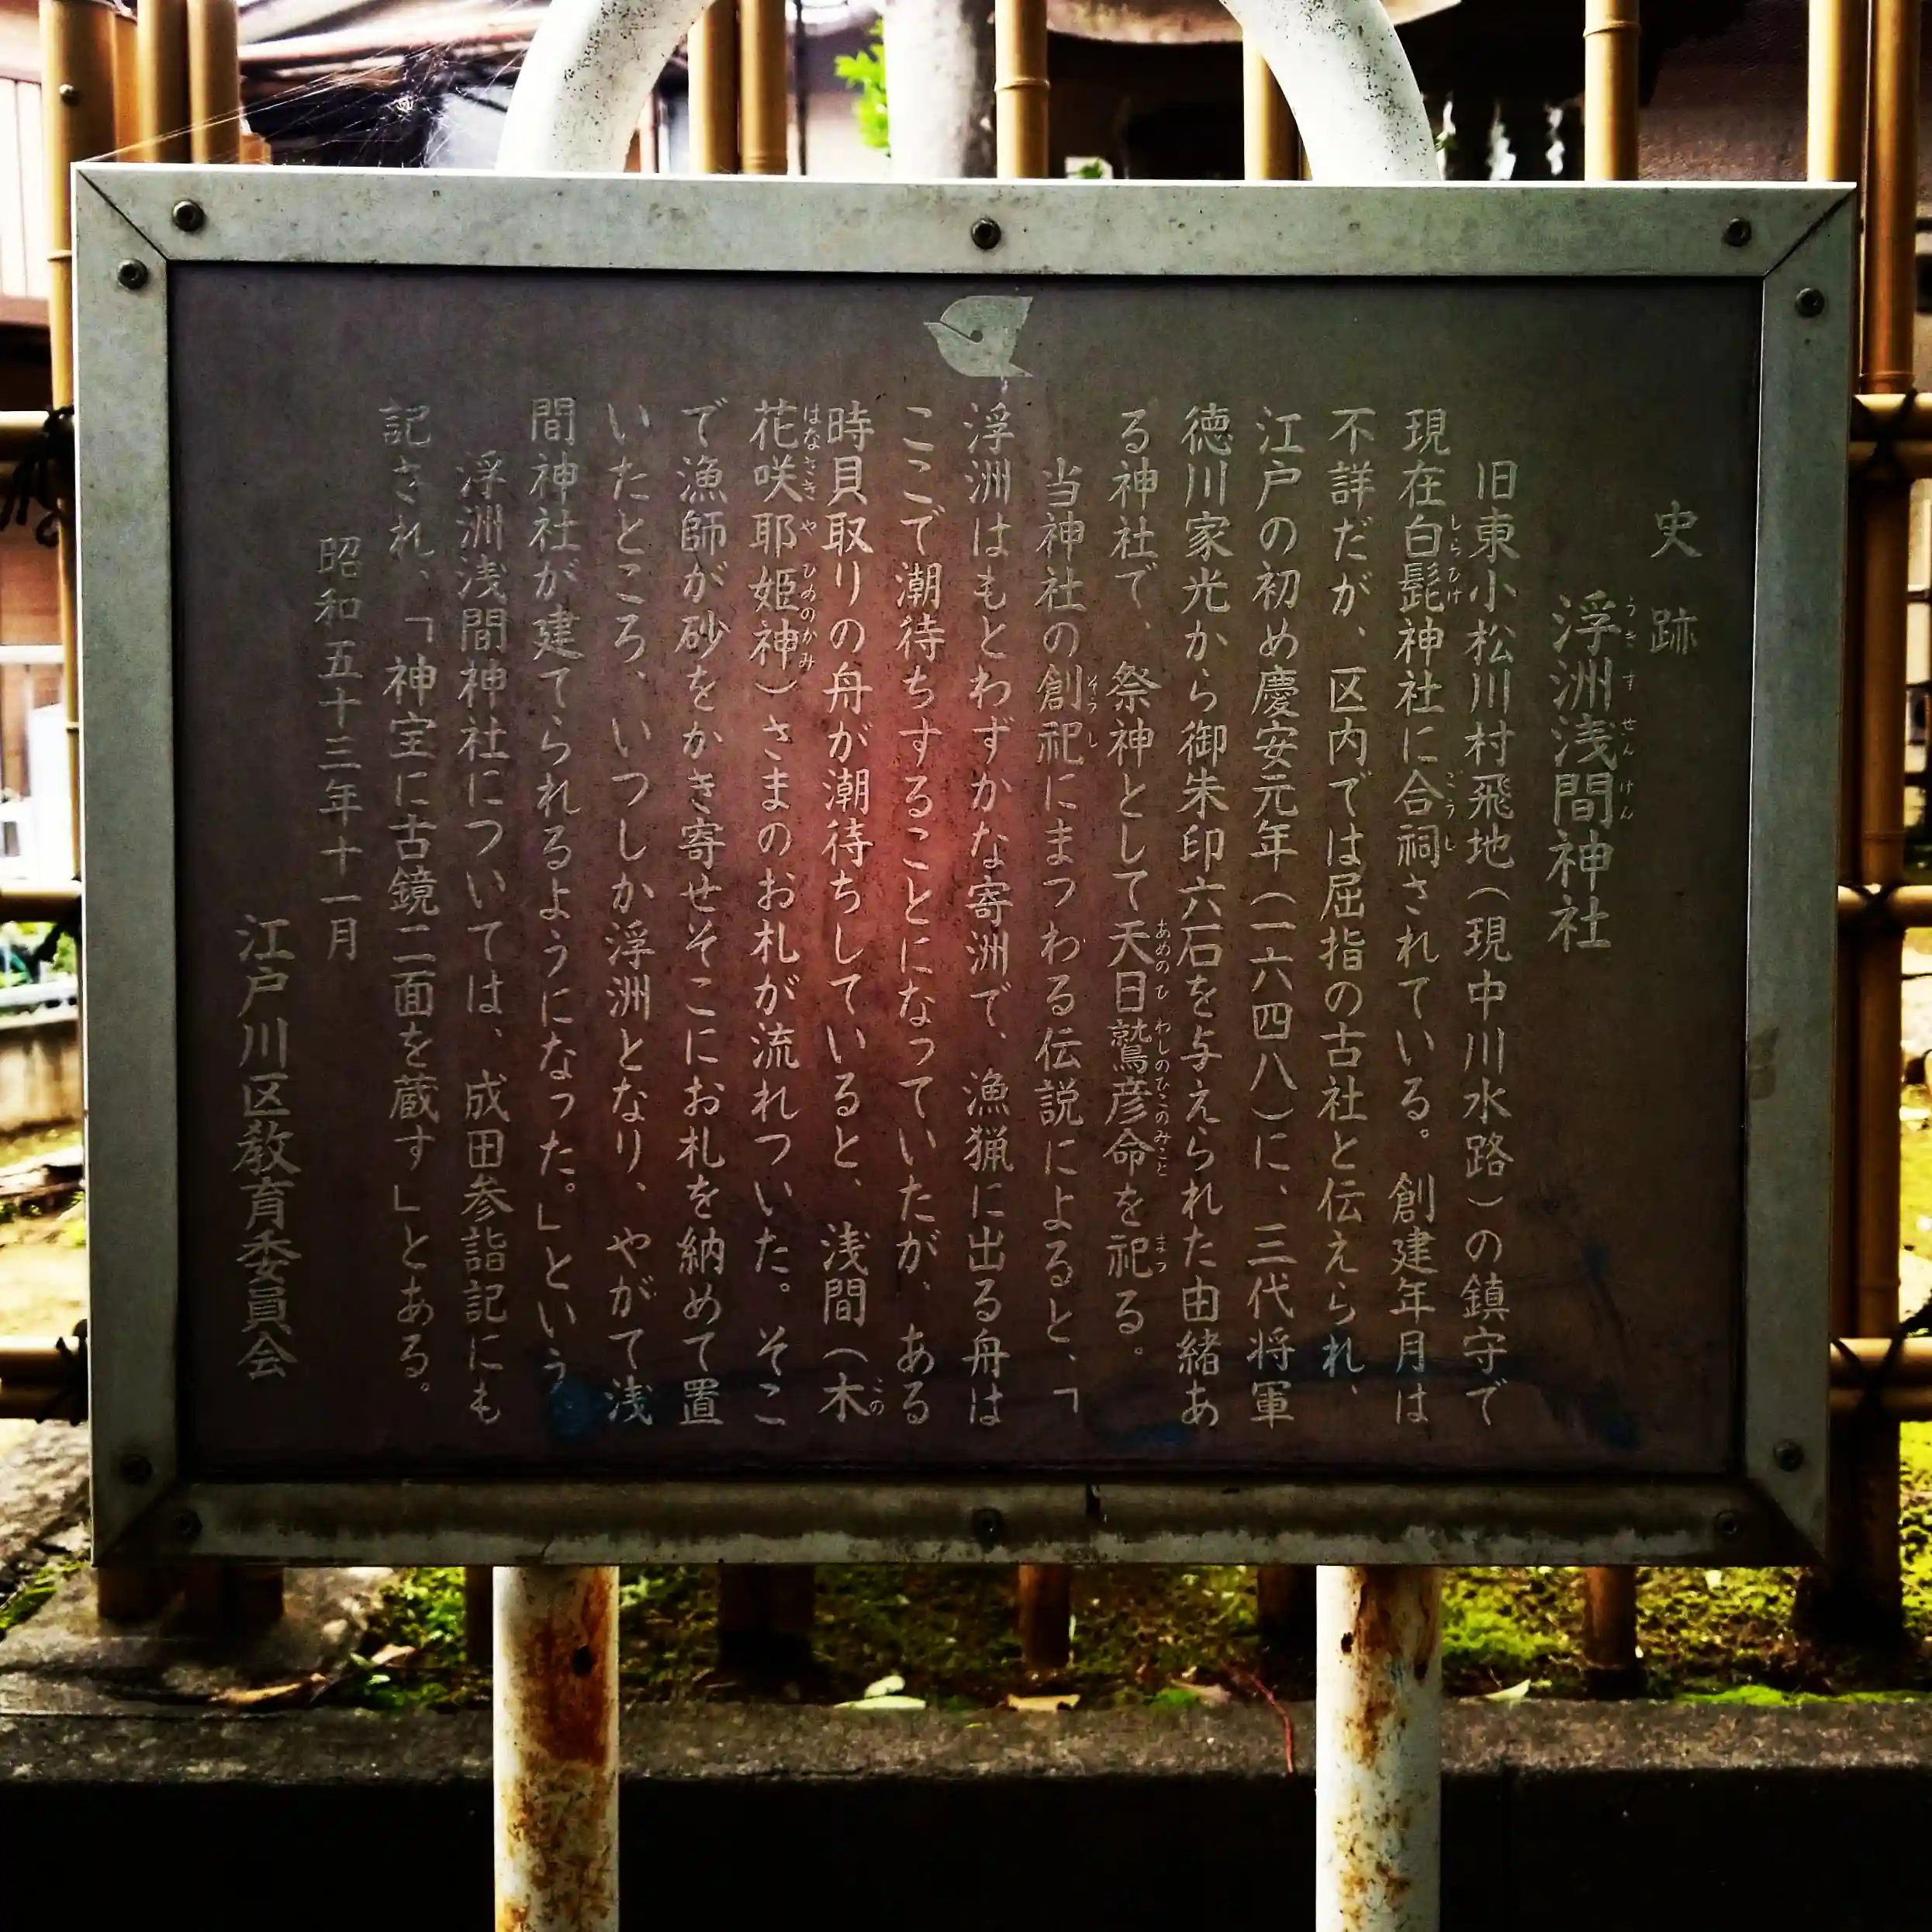 史跡
浮洲浅間神社
旧東小松川村飛地（現中川水路）の鎮守で
現在白髭神社に合祠されている。創建年月は
不詳だが、区内では屈指の古社と伝えられ、
江戸の初め慶安元年（一六四八）に、三代将軍
徳川家光から御朱印六石を与えられた由緒あ
る神社で、祭神として天日鷲彦命を祀る。
当神社の創祀にまつわる伝説によると、「
浮洲はもとわずかな寄洲で、漁猟に出る舟は
ここで潮待ちすることになっていたが、ある
時貝取りの舟が潮待ちしていると、浅間（木
花咲耶姫神）さまのお札が流れついた。そこ
で漁師が砂をかき寄せそこにお札を納めて置
いたところ、いつしか浮洲となり、やがて浅
間神社が建てられるようになった。」という
浮洲浅間神社については、成田参詣記にも
記され、「神宝に古鏡二面を蔵す」とある。
昭和五十三年十一月
江戸川区教育委員会